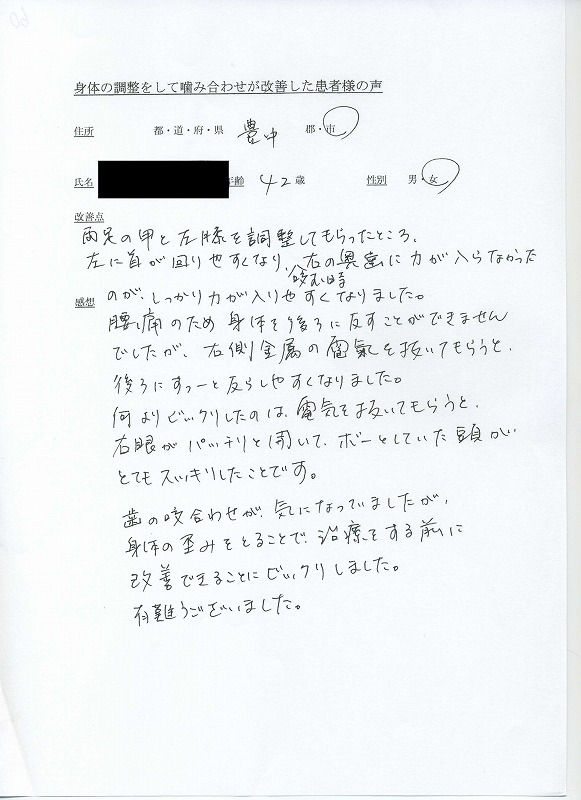 身体の調整をして噛み合わせが改善した患者様の声
住所 都・道・府・県 豊中 郡・市
氏名 年齢 42歳 性別 男・女
改善点
両足の甲と左膝を調整してもらったところ、
左に首が回りやすくなり、咬む時右の奥歯に力が入らなかった
のが、しっかり力が入りやすくなりました。
感想
腰痛のため身体を後ろに反すことができません
でしたが、右側金属の電氣を抜いてもらうと、
後ろにすっーと反らしやすくなりました。
何よりビックリしたのは、電気を抜いてもらうと、
右眼がパッチリと開いて、ボーとしていた頭が
とてもスッキリしたことです。
歯の咬合わせが、気になっていましたが、
身体の歪みをとることで、治療をする前に
改善できることにビックリしました。
有難うございました。